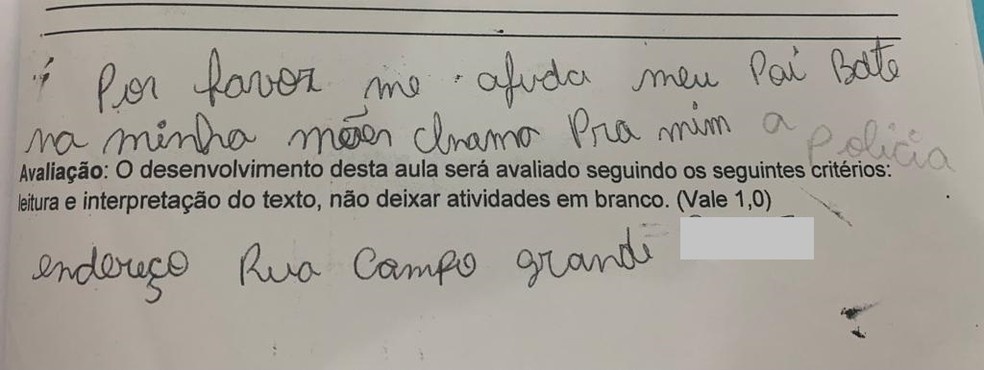 Por favor me ajuda meu Pai Bate
na minha mães chamo Pra mim a Policia
Avaliação: O desenvolvimento desta aula será avaliado seguindo os seguintes critérios:
leitura e interpretação do texto, não deixar atividades em branco. (Vale 1,0)
endereço Rua Campo grande